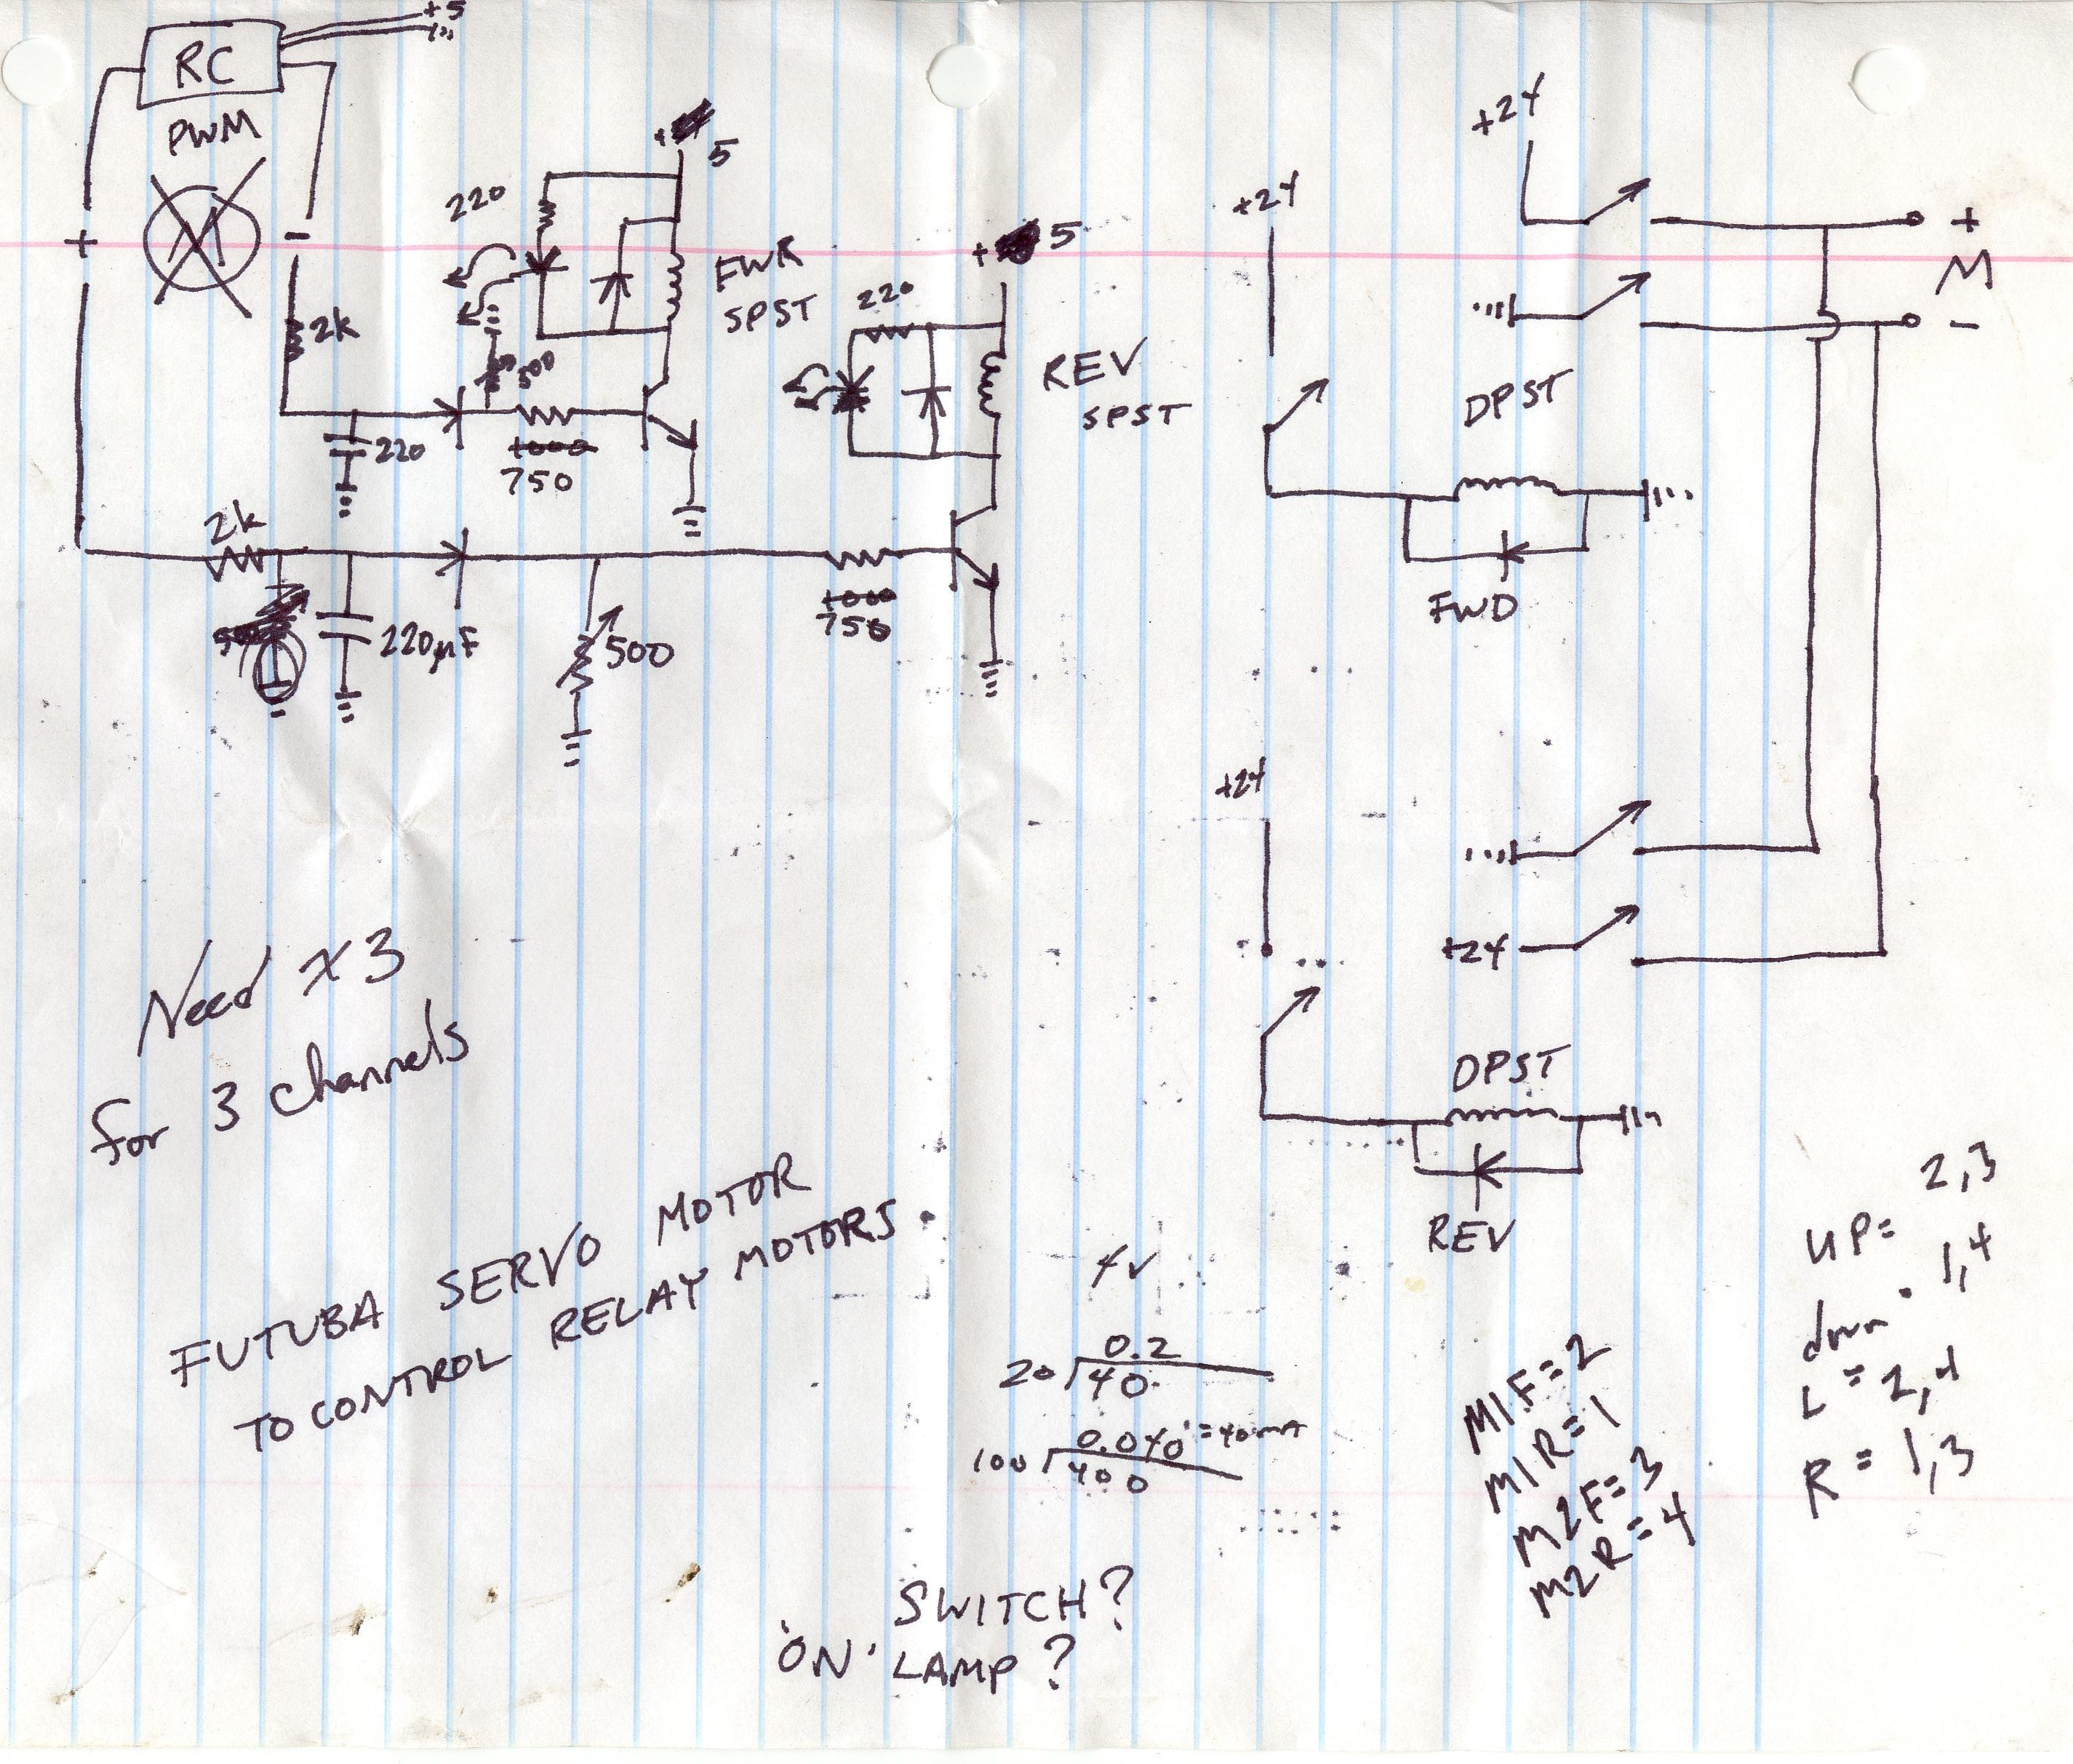 +5
RC
PWM
+
-
2k
220
+
5
FWR
SPST
500
220
1000
750
+
5
220
REV
SPST
2k
220µF
500
1000
750
+24
+24
+
M
-
DPST
FWD
+24
+24
DPST
REV
Need x3
for 3 channels
FUTUBA SERVO MOTOR
TO CONTROL RELAY MOTORS
4v
0.2
20 40.
0.040 = 40mA
100 400
M1F=2
M1R=1
M2F=3
M2R=4
UP= 2,3
down = 1,4
L = 2,4
R = 1,3
SWITCH?
'ON' LAMP?